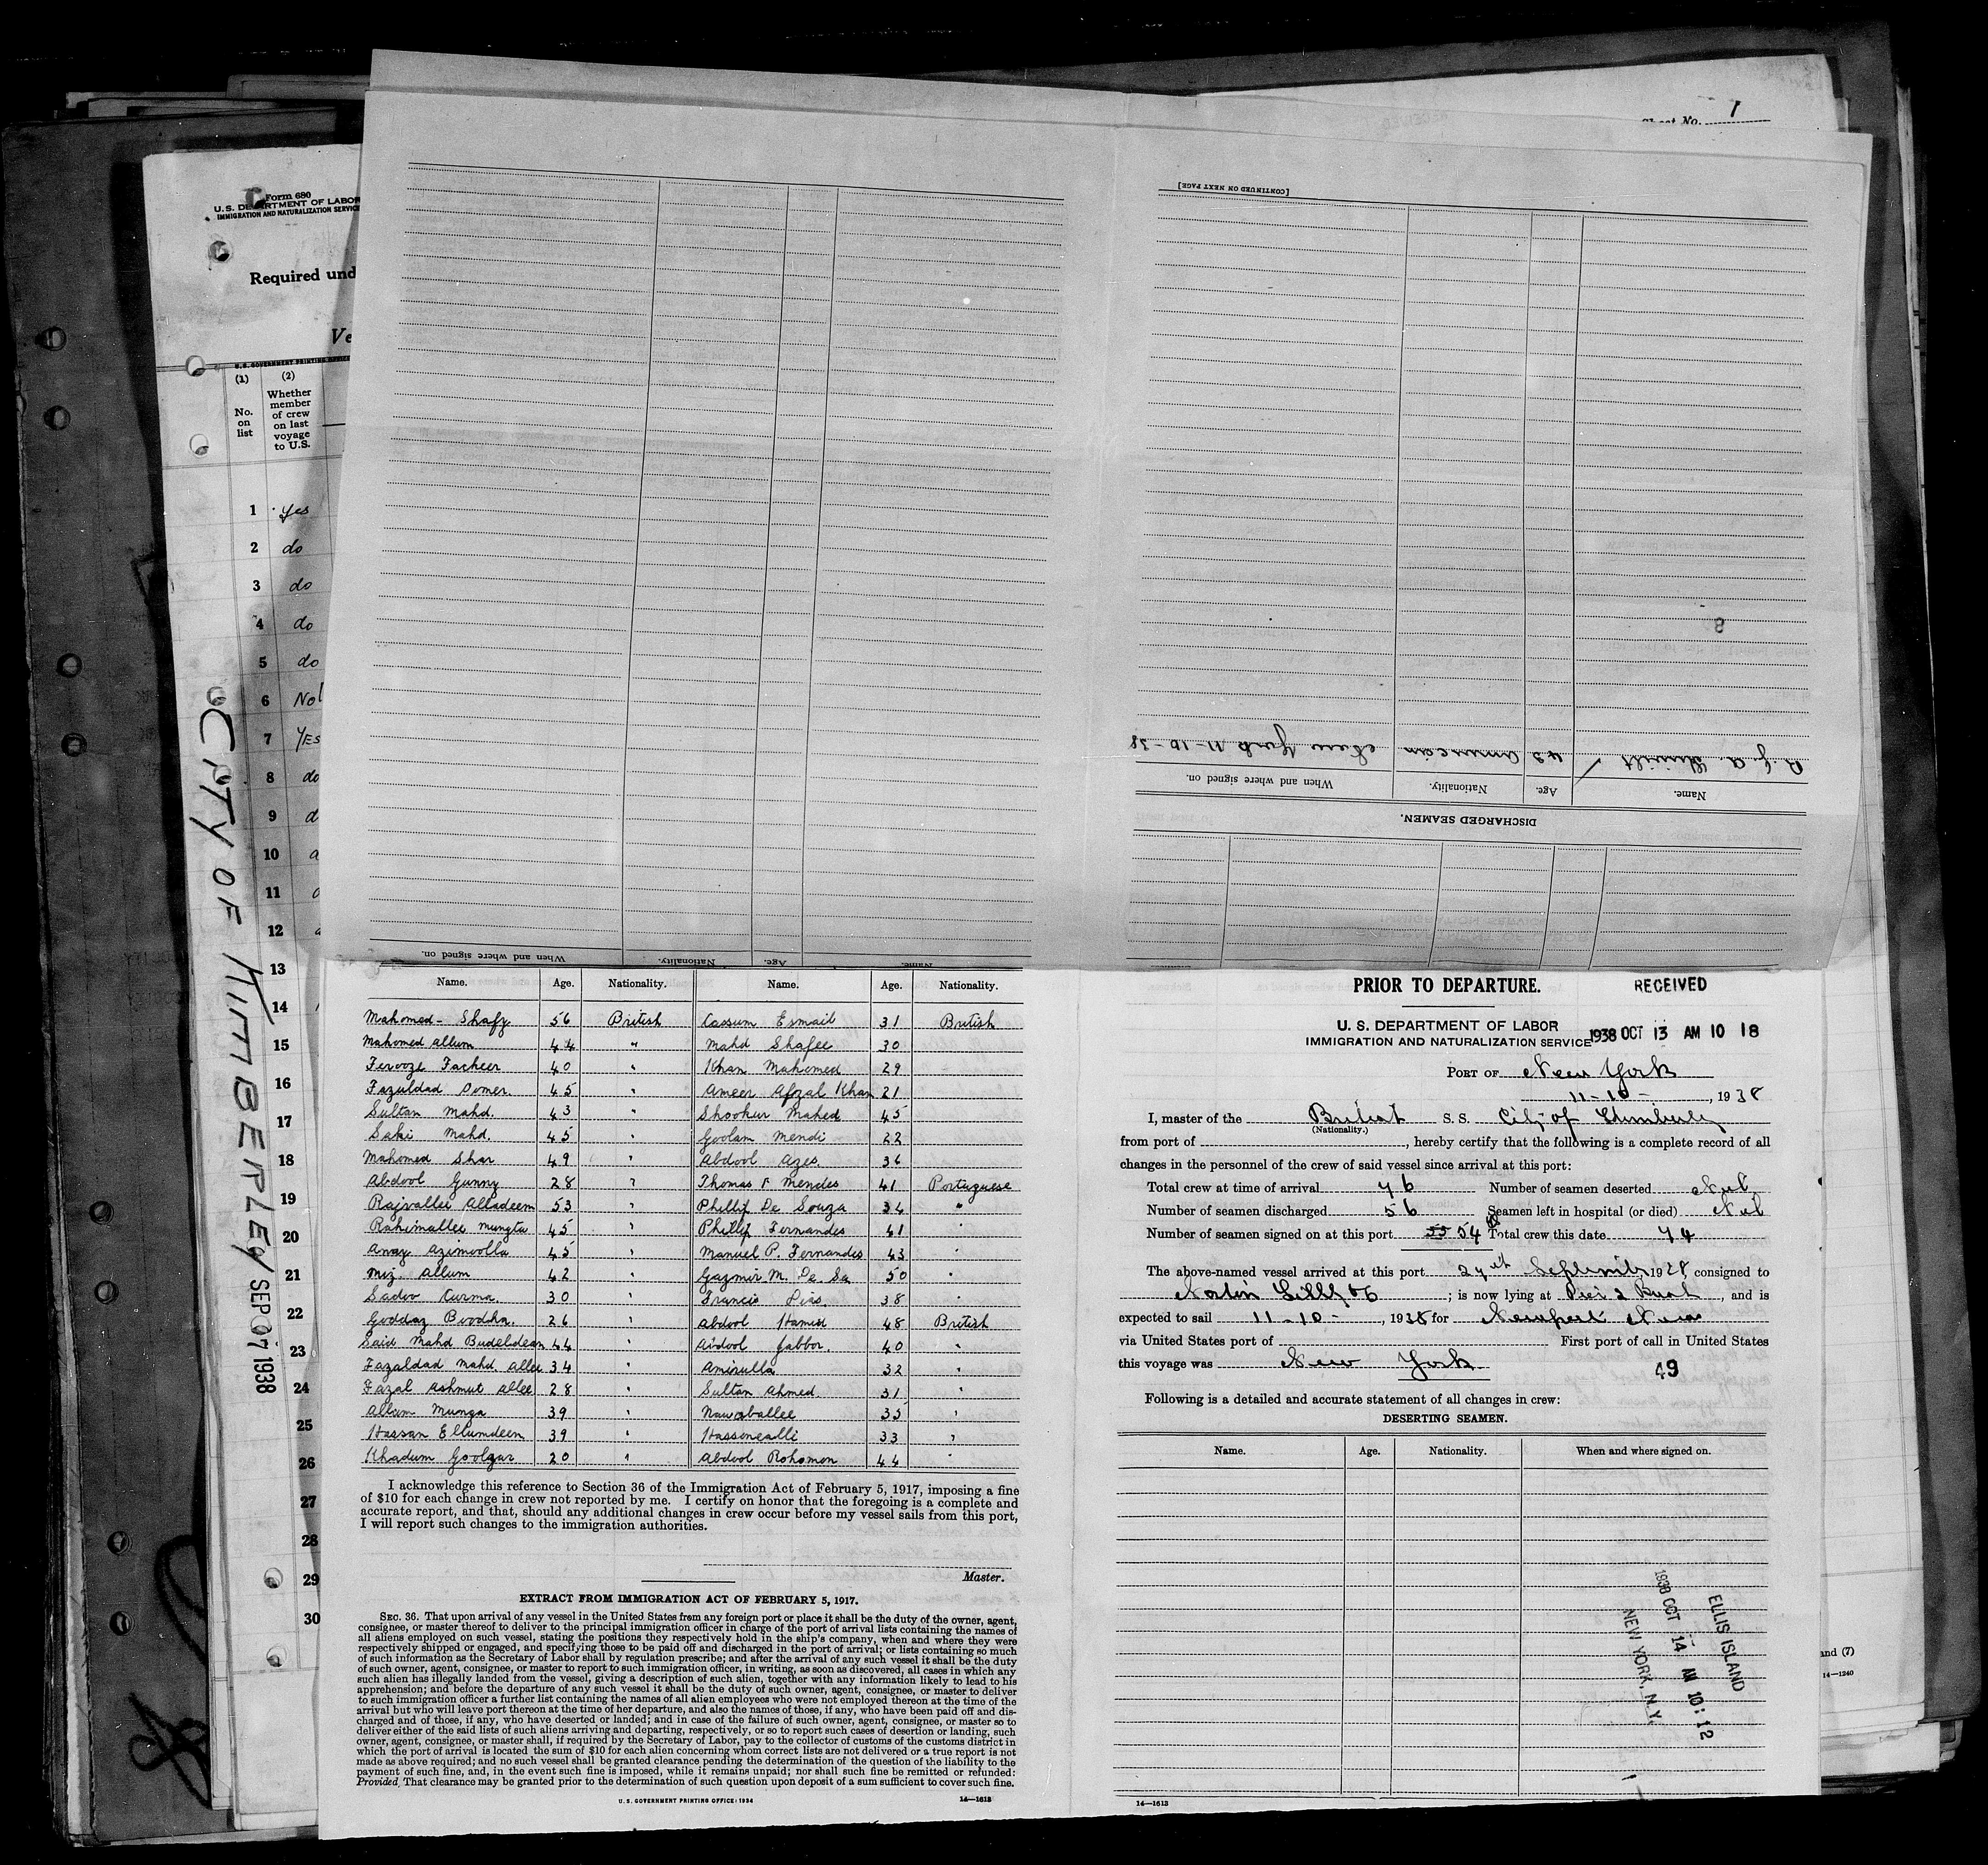 Sheet No. 1
Form 680
U. S. DEPARTMENT OF LABOR
IMMIGRATION AND NATURALIZATION SERVICE
Required und
Ve
(1) (2)
No. on list
Whether member of crew on last voyage to U.S.
1 Yes
2 do
3 do
4 do
5 do
6 No
7 YES
8 do
9 d
10
11
12
13
14
15
16
17
18
19
20
21
22
23
24
25
26
27
28
29
30
CITY OF KIMBERLEY SEP 07 1938
[CONTINUED ON NEXT PAGE]
8
43 American New York 11-10-38
Name. Age. Nationality. When and where signed on.
DISCHARGED SEAMEN.
Name. Age. Nationality. When and where signed on.
Name. Age. Nationality. Name. Age. Nationality.
Mahomed Shafy 56 British Cassum Esmail 31 British
Mahomed Allum 44 " Mahd Shafee 30
Ferooze Facheer 40 " Khan Mahomed 29
Fazuldad Oomer 45 " Ameer Afzal Khan 21
Sultan Mahd. 43 " Shookur Mahed 45
Saki Mahd. 45 " Goolam Mendi 22
Mahomed Shar 49 " Abdool Azes. 36
Abdool Gunny 28 " Thomas F Mendes 41 Portuguese
Rajvallee Alladeem 53 " Phillip De Souza 34 "
Rahimallee Mungta 45 " Phillip Fernandes 41 "
Anay Azimoolla 45 " Manuel P. Fernandes 43 "
Miz. Allum 42 " Gazmir M. De Sa 50 "
Sadoo Curma 30 " Francis Dias. 38 "
Goddaz Boodha. 26 " Abdool Hamed 48 British
Said Mahd Budeldean 44 " Abdool Jabbor. 40 "
Fazaldad Mahd Allee 34 " Amirulla 32 "
Fazal Ashmut Allee 28 " Sultan Ahmed 31 "
Allum Munga 39 " Nawaballee 35 "
Hassan Ellumdeen 39 " Hassonealli 33 "
Khadum Goolzar 20 " Abdool Rohomon 44 "
I acknowledge this reference to Section 36 of the Immigration Act of February 5, 1917, imposing a fine
of $10 for each change in crew not reported by me. I certify on honor that the foregoing is a complete and
accurate report, and that, should any additional changes in crew occur before my vessel sails from this port,
I will report such changes to the immigration authorities.
Master.
EXTRACT FROM IMMIGRATION ACT OF FEBRUARY 5, 1917.
SEC. 36. That upon arrival of any vessel in the United States from any foreign port or place it shall be the duty of the owner, agent,
consignee, or master thereof to deliver to the principal immigration officer in charge of the port of arrival lists containing the names of
all aliens employed on such vessel, stating the positions they respectively hold in the ship's company, when and where they were
respectively shipped or engaged, and specifying those to be paid off and discharged in the port of arrival; or lists containing so much
of such information as the Secretary of Labor shall by regulation prescribe; and after the arrival of any such vessel it shall be the duty
of such owner, agent, consignee, or master to report to such immigration officer, in writing, as soon as discovered, all cases in which any
such alien has illegally landed from the vessel, giving a description of such alien, together with any information likely to lead to his
apprehension; and before the departure of any such vessel it shall be the duty of such owner, agent, consignee, or master to deliver
to such immigration officer a further list containing the names of all alien employees who were not employed thereon at the time of the
arrival but who will leave port thereon at the time of her departure, and also the names of those, if any, who have been paid off and dis-
charged and of those, if any, who have deserted or landed; and in case of the failure of such owner, agent, consignee, or master so to
deliver either of the said lists of such aliens arriving and departing, respectively, or so to report such cases of desertion or landing, such
owner, agent, consignee, or master shall, if required by the Secretary of Labor, pay to the collector of customs of the customs district in
which the port of arrival is located the sum of $10 for each alien concerning whom correct lists are not delivered or a true report is not
made as above required; and no such vessel shall be granted clearance pending the determination of the question of the liability to the
payment of such fine, and, in the event such fine is imposed, while it remains unpaid; nor shall such fine be remitted or refunded:
Provided, That clearance may be granted prior to the determination of such question upon deposit of a sum sufficient to cover such fine.
U. S. GOVERNMENT PRINTING OFFICE: 1934 14—1613
PRIOR TO DEPARTURE. RECEIVED
U. S. DEPARTMENT OF LABOR
IMMIGRATION AND NATURALIZATION SERVICE 1938 OCT 13 AM 10 18
PORT OF New York
11-10-, 1938
I, master of the British S. S. City of Kimberly
(Nationality.)
from port of , hereby certify that the following is a complete record of all
changes in the personnel of the crew of said vessel since arrival at this port:
Total crew at time of arrival 76 Number of seamen deserted Nil
Number of seamen discharged 56 Seamen left in hospital (or died) Nil
Number of seamen signed on at this port 54 Total crew this date 74
The above-named vessel arrived at this port September 1938, consigned to
Norton Lilly & Co ; is now lying at Pier 2 Bush , and is
expected to sail 11-10- , 1938 for Newport News
via United States port of First port of call in United States
this voyage was New York
49
Following is a detailed and accurate statement of all changes in crew:
DESERTING SEAMEN.
Name. Age. Nationality. When and where signed on.
ELLIS ISLAND
1938 OCT 14 AM 10:12
NEW YORK, N.Y.
14—1613
and (7)
14—1240